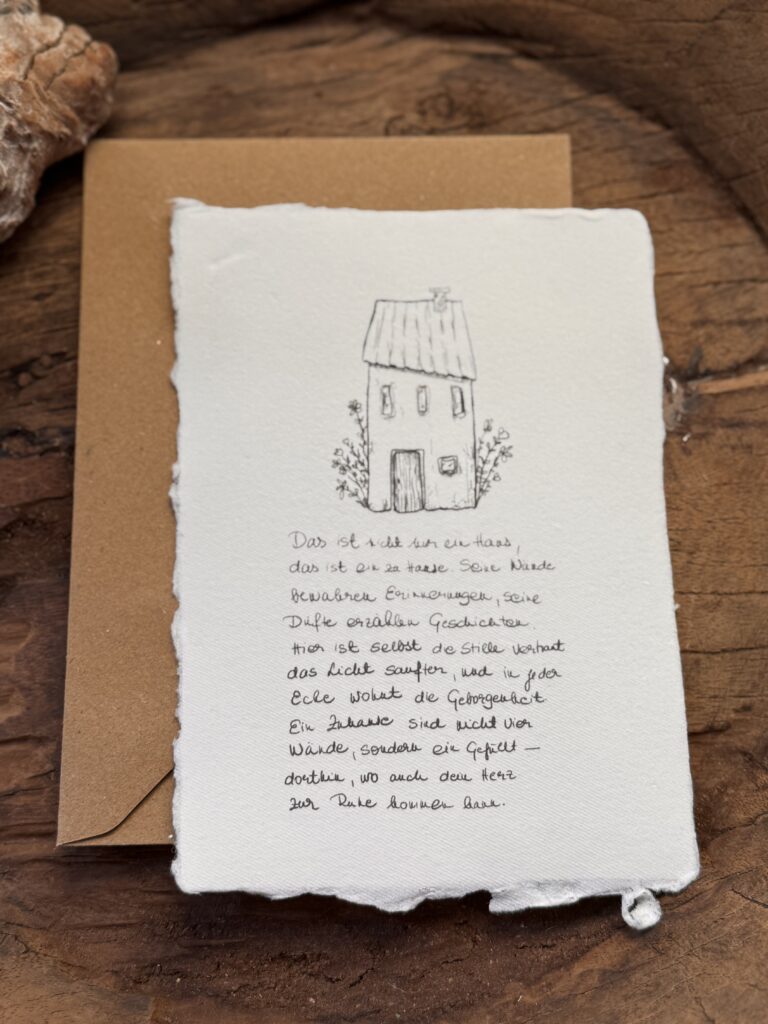 Das ist nicht nur ein Haus,
das ist ein zu Hause. Seine Wände
bewahren Erinnerungen, seine
Düfte erzählen Geschichten.
Hier ist selbst die Stille vertraut
das Licht sanfter, und in jeder
Ecke wohnt die Geborgenheit
Ein Zuhause sind nicht vier
Wände, sondern ein Gefühl —
dorthin, wo auch dein Herz
zur Ruhe kommen kann.